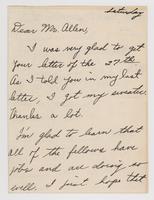 Saturday
Dear Mr. Allen,
I was very glad to get
your letter of the 27th.
As I told you in my last
letter, I got my sweater.
Thanks a lot.
I'm glad to learn that
all of the fellows have
jobs and are doing so
well. I just hope that